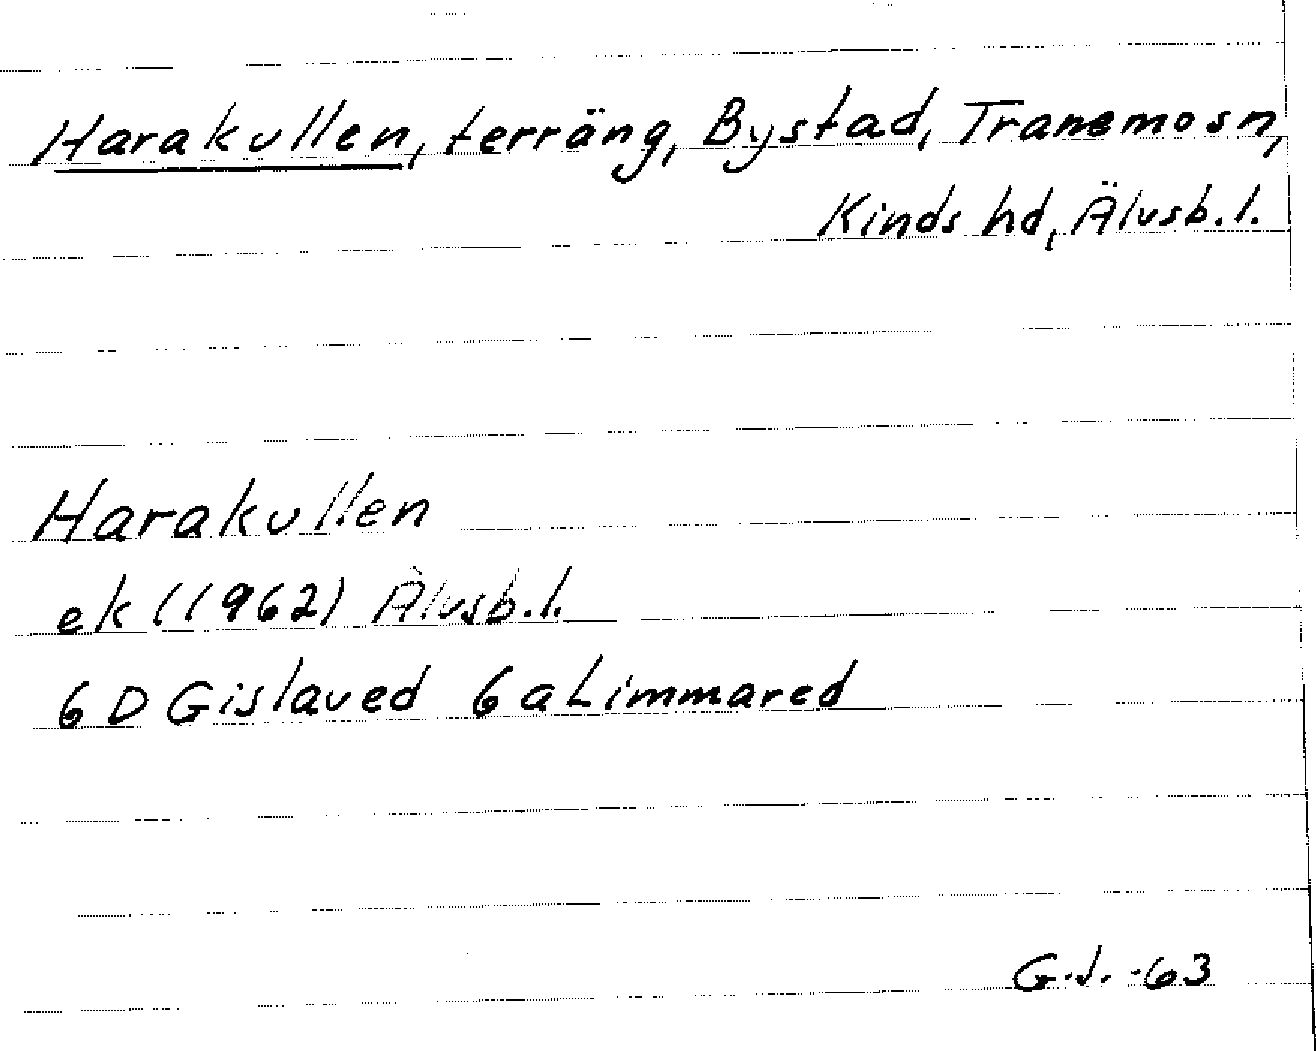 Harakullen, terräng, Bystad, Tranemo sn,
Kinds hd, Älvsb. l.
Harakullen
ek (1962) Älvsb. l.
6 D Gislaved 6 a Limmared
G.J. -63